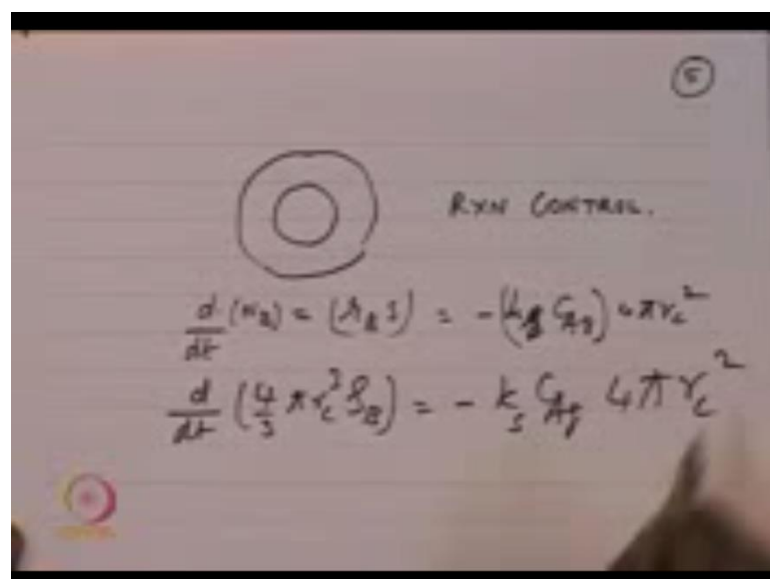 5
RXN CONTROL.
d/dt (n_B) = (r_B S) = -(k_s C_Ag) 4πr_c²
d/dt (4/3 πr_c³ ρ_B) = - k_s C_Ag 4πr_c²